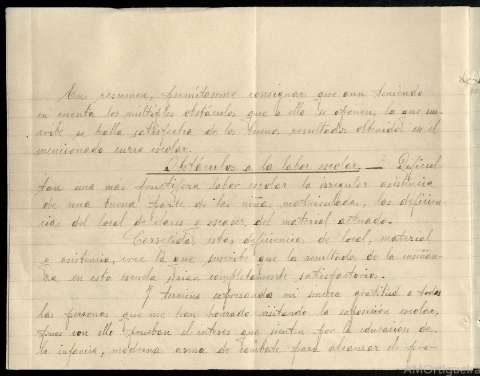 En resumen, permítaseme consignar que aun teniendo
en cuenta los múltiples obstáculos que a ello se oponen, la que sus-
cribe se halla satisfecha de los buenos resultados obtenidos en el
mencionado curso escolar.
Obstáculos a la labor escolar. — Dificul
tan una más fructífera labor escolar la irregular asistencia
de una buena parte de las niñas matriculadas, las deficien-
cias del local de clases y escasez del material actuado.
Corregidas estas deficiencias de local, material
y asistencia, cree la que suscribe que los resultados de la enseñan-
za en esta escuela serían completamente satisfactorios.
Y termino expresando mi sincera gratitud a todas
las personas que me han honrado visitando la exposición escolar,
pues con ello prueban el interés que sienten por la educación de
la infancia, moderna arma de combate para alcanzar el pro-
AMOrtigueira